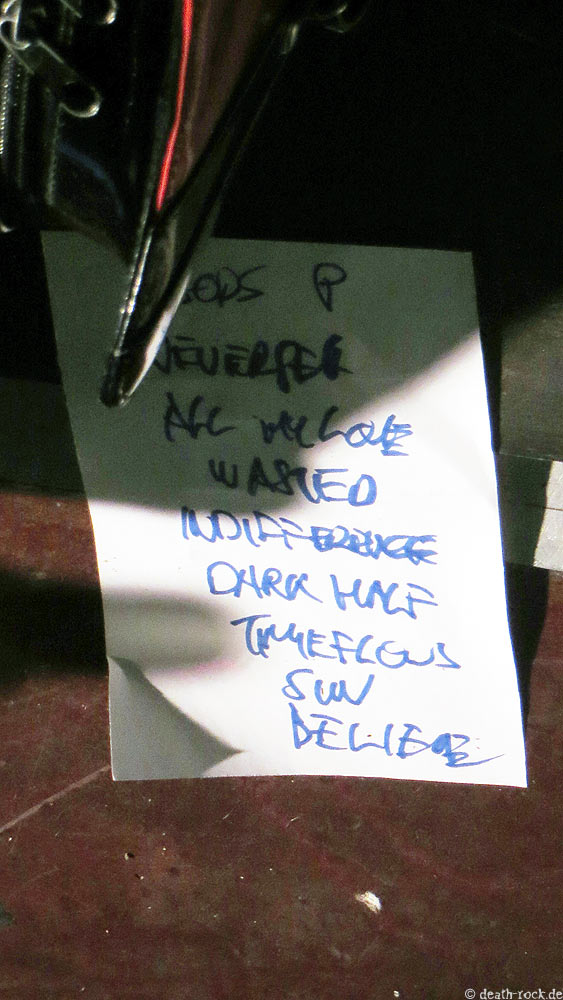 P
ALL MY LOVE
WASTED
INDIFFERENCE
DARK HALF
TIMEFLOWS
SUN
BELIEVE
© death-rock.de